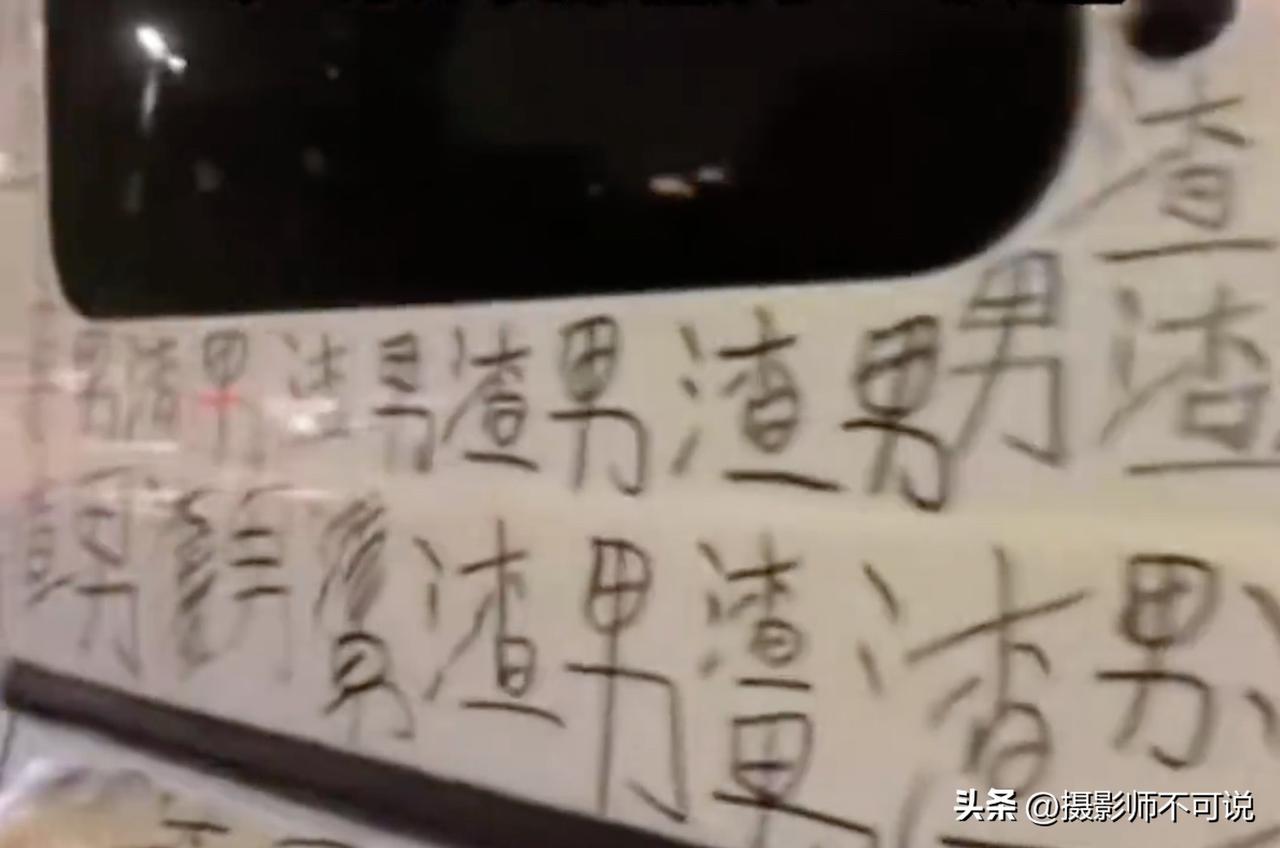 查
男渣男渣男渣男渣男男渣
男 男渣男渣男渣男
头条 @摄影师不可说